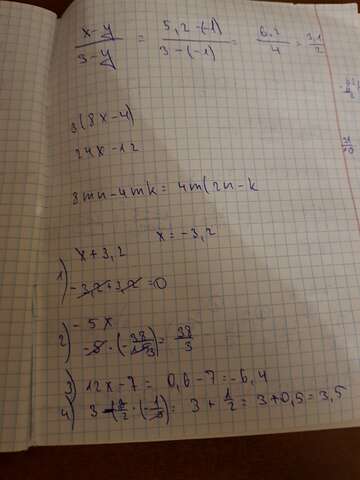 x-y/3-y = 5,2-(-1)/3-(-1) = 6,2/4 = 3,1/2
3(8x-4)
24x-12
8mn-4mk = 4m(2n-k
x = -3,2
1) x+3,2
-3,2+3,2=0
2) -5x
-5·(-38/15)= 38/3
3) 12x-7 = 0,6-7=-6,4
4) 3 = 3+1/2 = 3+0,5 = 3,5